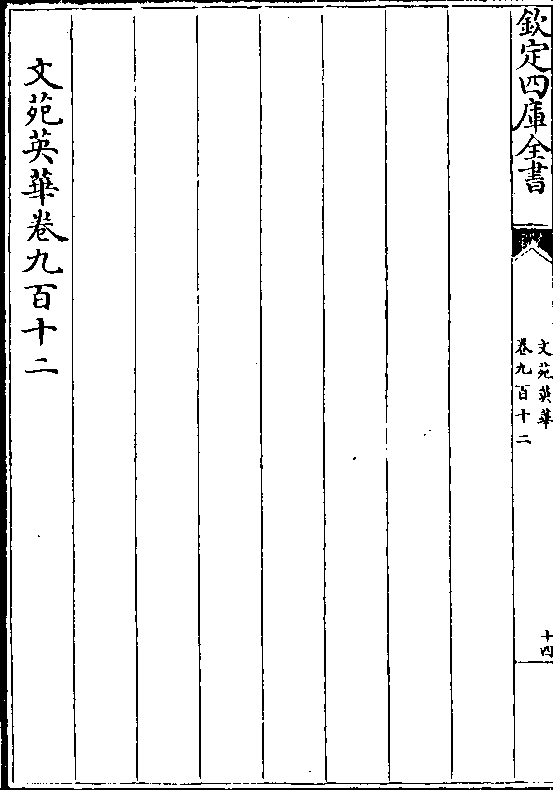 欽定四庫全書
文苑英華
卷九百十二
十四
文苑英華卷九百十二